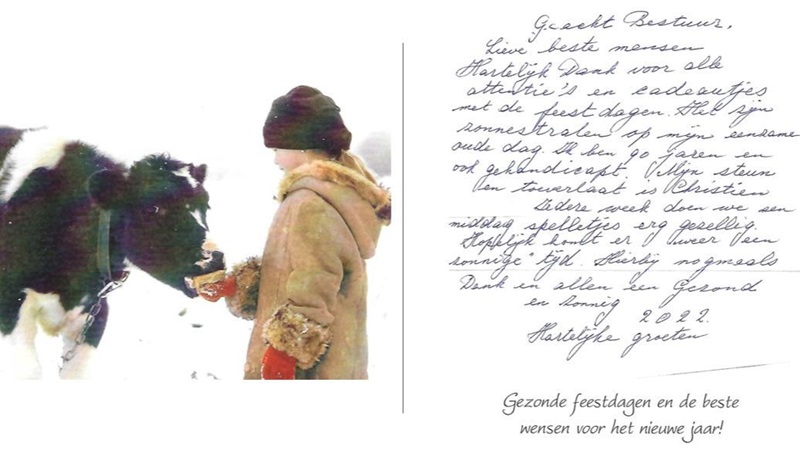 Geacht Bestuur,
Lieve beste mensen
Hartelijk Dank voor alle
attentie's en cadeautjes
met de feestdagen. Het zijn
zonnestralen op mijn eenzame
oude dag. Ik ben 90 jaren en
ook gehandicapt. Mijn steun
en toeverlaat is Christien
Iedere week doen we een
middag spelletjes erg gezellig.
Hopelijk komt er weer een
zonnige" tijd. Hierbij nogmaals
Dank en allen een Gezond
en zonnig
2022.
Hartelijke groeten
Gezonde feestdagen en de beste
wensen voor het nieuwe jaar!